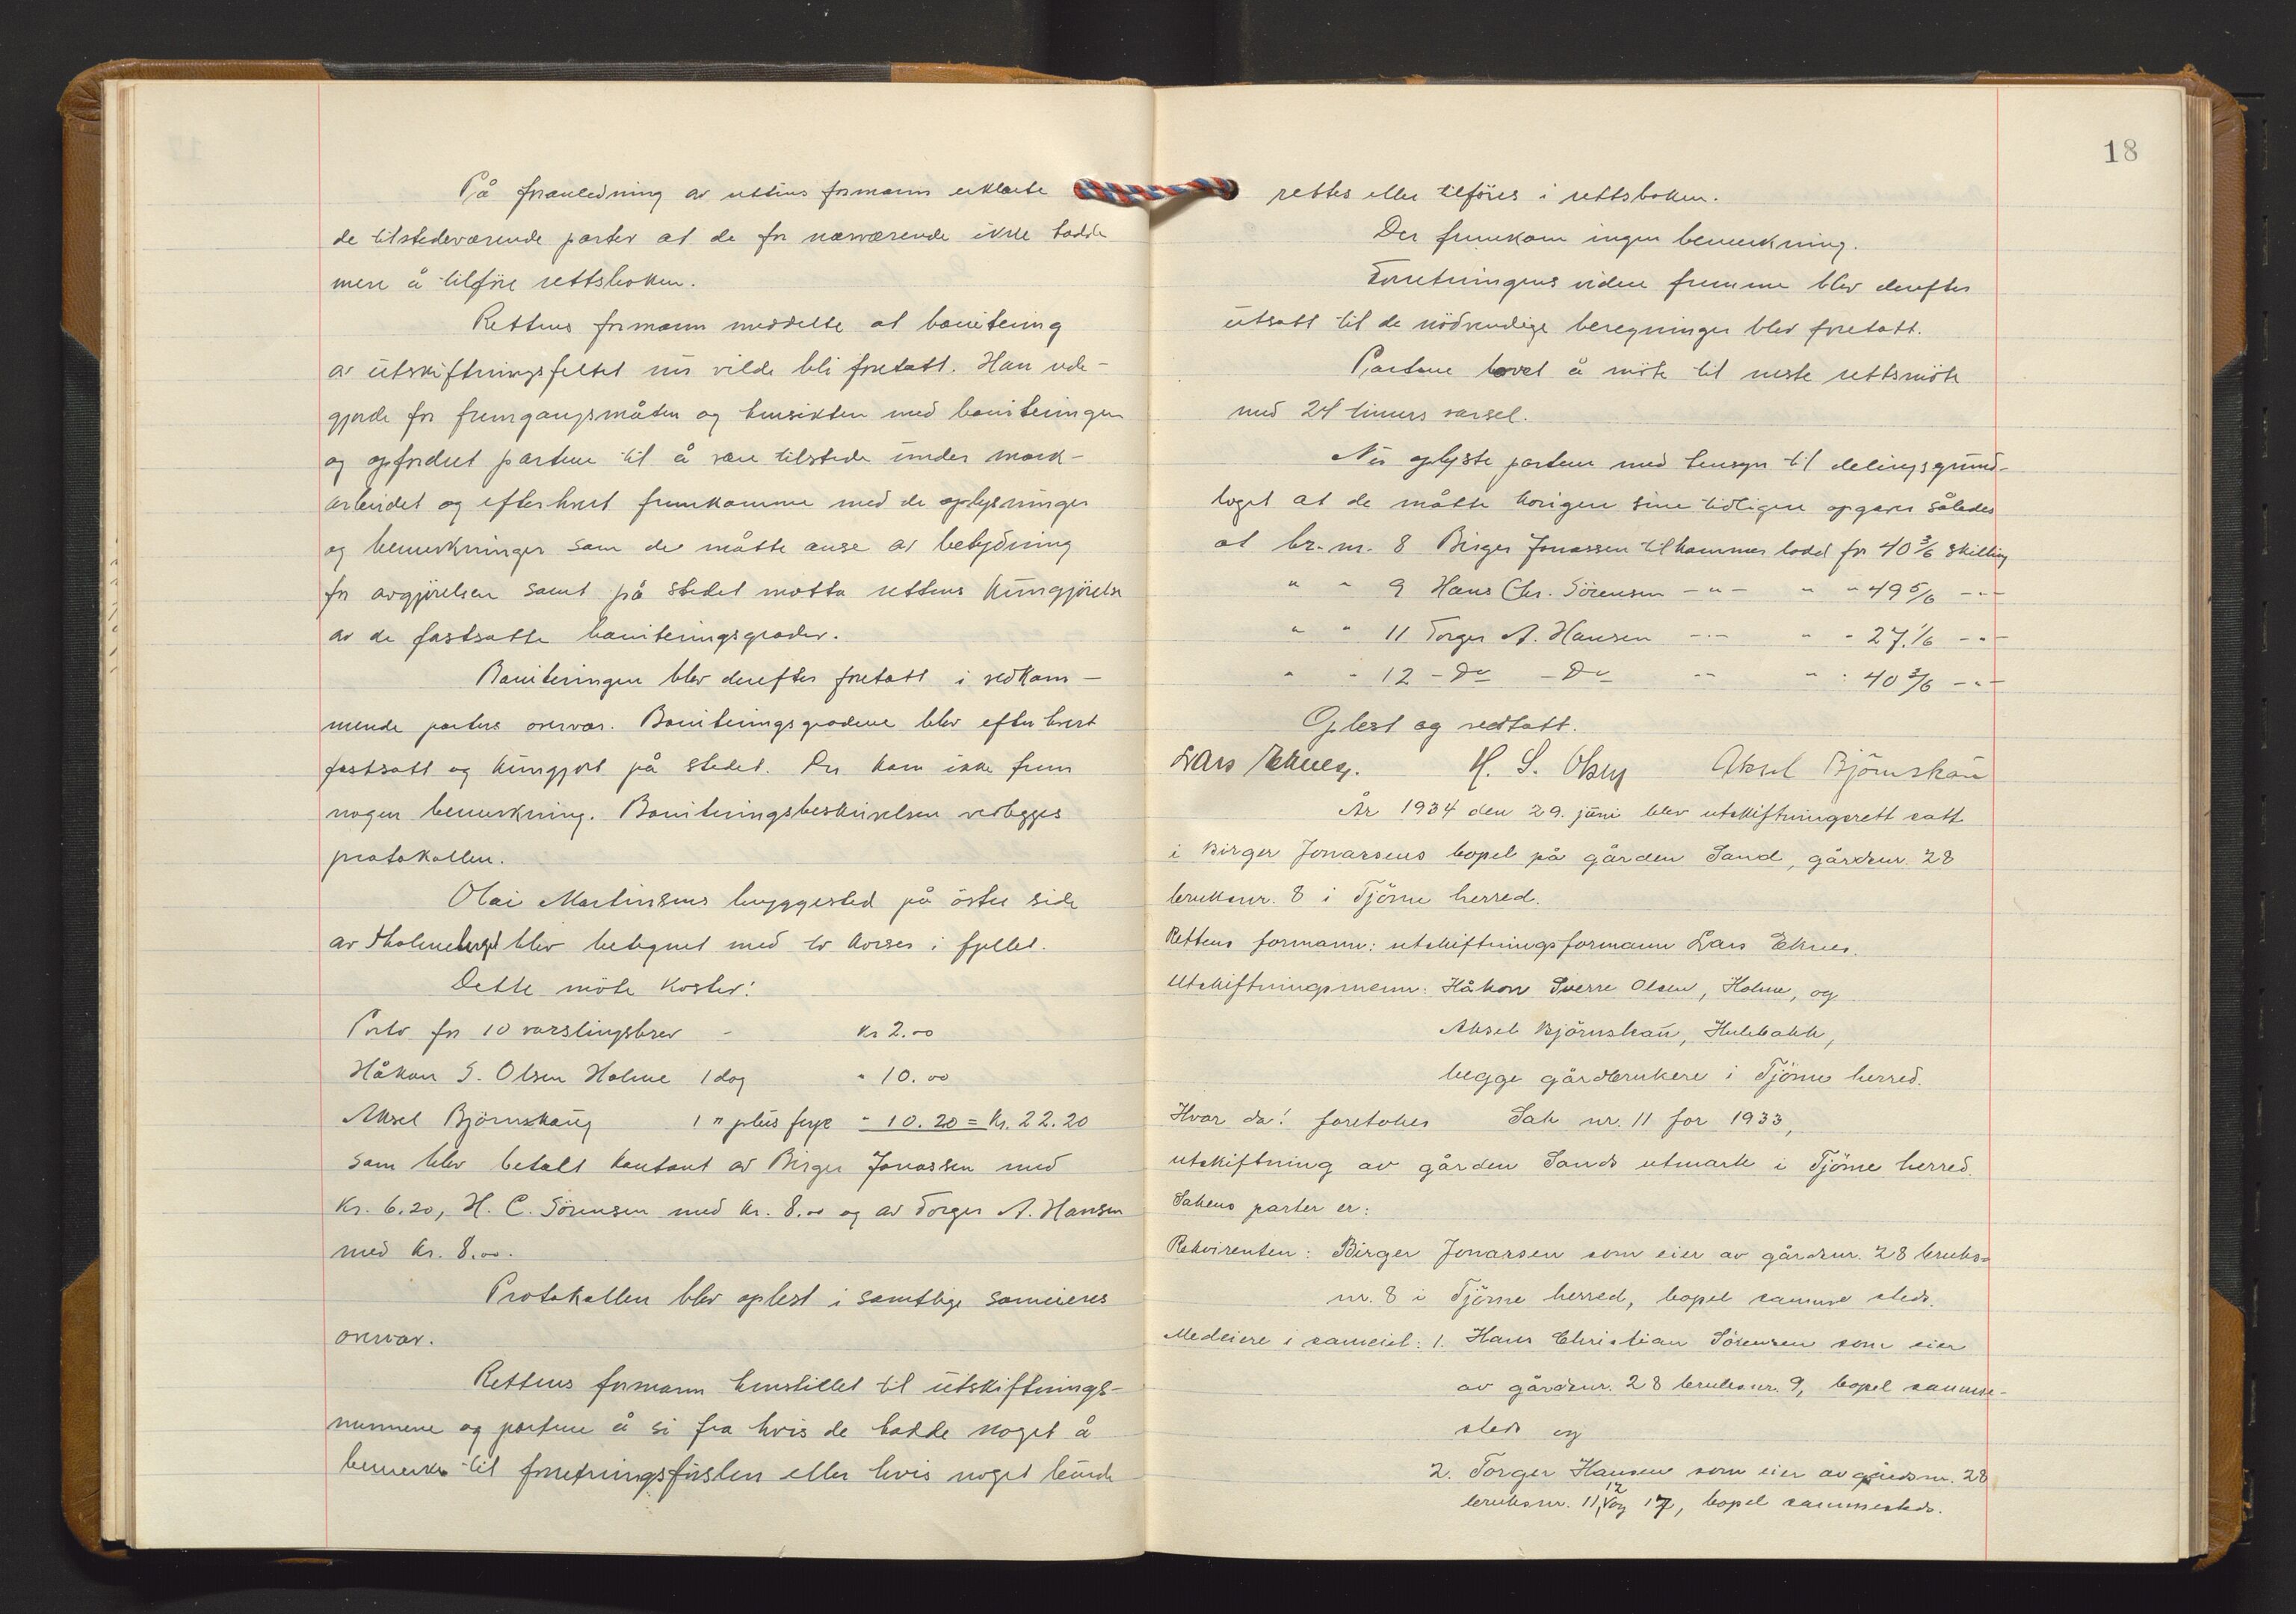 På foranledning av rettens formann erklærte
de tilstedeværende parter at de for nærværende ikke hadde
mere å tilföre rettsboken.
Rettens formann meddelte at bonitering
av utskiftningsfeltet nu vilde bli foretatt. Han rede-
gjorde for fremgangsmåten og hensikten med boniteringen
og opfordret partene til å være tilstede under mark-
arbeidet og efterhvert fremkomme med de oplysninger
og bemerkninger som de måtte anse av betydning
for avgjörelsen samt på stedet motta rettens kungjörelse
av de fastsatte boniteringsgrader.
Boniteringen blev derefter foretatt i vedkom-
mende parters overvær. Boniteringsgradene blev efterhvert
fastsatt og kungjort på stedet. Der kom ikke frem
nogen bemerkning. Boniteringsbeskrivelsen vedlegges
protokollen.
Olai Martinsens byggested på östre side
av blev betegnet med to korser i fjellet.
Dette möte koster:
Porto for 10 varslingsbrev - kr 2.00
Håkon S. Olsen Holme 1 dag " 10.00
Aksel Björnskaug 1 " pluss ferje " 10.20 = Kr. 22.20
som blev betalt kontant av Birger Jonassen med
Kr. 6.20, H. C. Sörensen med kr. 8.00 og av Torger A. Hansen
med kr. 8.00.
Protokollen blev oplest i samtlige sameieres
overvær.
Rettens formann henstillet til utskiftnings-
mennene og partene å si fra hvis de hadde noget å
bemerke til forretningsförslen eller hvis noget burde
18
rettes eller tilföres i rettsboken.
Der fremkom ingen bemerkning.
Forretningens videre fremme blev derefter
utsatt til de nödvendige beregninger blev foretatt.
Partene lovet å möte til neste rettsmöte
med 24 timers varsel.
Nu oplyste partene med hensyn til delingsgrund-
laget at de måtte korigere sine tidligere opgaver således
at br. nr. 8 Birger Jonassen tilkommer lodd for 40 3/6 skilling
" " 9 Hans Chr. Sörensen - " - " " 49 5/6 - " -
" " 11 Torger A. Hansen - " - " " 27 1/6 - " -
" " 12 - Do - Do - " - " " 40 3/6 - " -
Oplest og vedtatt.
Lars Eknes. H. S. Olsen Aksel Björnskau
År 1934 den 29. juni blev utskiftningsrett satt
i Birger Jonassens bopel på gården Sand, gårdsnr. 28
bruksnr. 8 i Tjöme herred.
Rettens formann: utskiftningsformann Lars Eknes.
Utskiftningsmenn: Håkon Sverre Olsen, Holme, og
Aksel Björnskau, Hulebakk,
begge gårdbrukere i Tjöme herred.
Hvor da! foretokes Sak nr. 11 for 1933,
utskiftning av gården Sands utmark i Tjöme herred.
Sakens parter er:
Rekvirenten: Birger Jonassen som eier av gårdsnr. 28 bruks-
nr. 8 i Tjöme herred, bopel samme steds.
Medeiere i sameiet: 1. Hans Christian Sörensen som eier
av gårdsnr. 28 bruksnr. 9, bopel samme-
steds og
2. Torger Hansen som eier av gårdsnr. 28
bruksnr. 11, 12 og 17, bopel sammesteds.